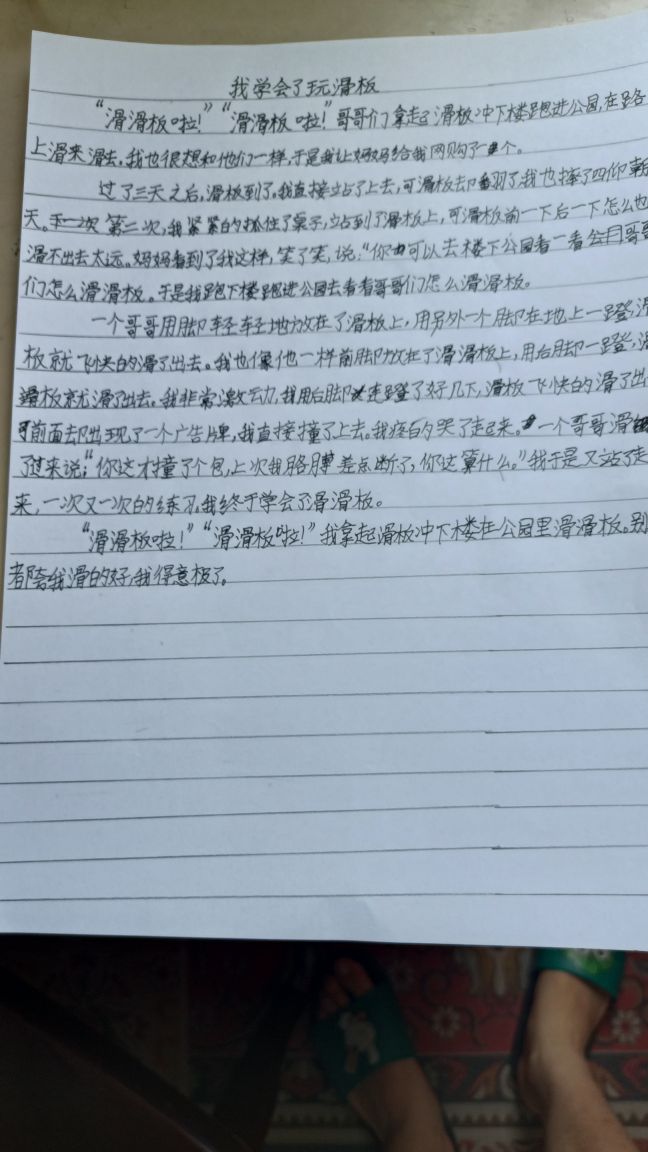 我学会了玩滑板
“滑滑板啦！”“滑滑板啦！”哥哥们拿走起滑板冲下楼跑进公园，在路
上滑来滑去，我也很想和他们一样，于是我让妈妈给我网购了一个。
过了三天之后，滑板到了，我直接站了上去，可滑板却翻了，我也摔了四仰朝
天。第二次，我紧紧的抓住了桌子，站到了滑板上，可滑板前一下后一下怎么也
滑不出去太远。妈妈看到了我这样，笑了笑，说：“你可以去楼下公园看一看哥哥
们怎么滑滑板。于是我跑下楼跑进公园去看看哥哥们怎么滑滑板。
一个哥哥用脚轻轻地放在了滑板上，用另外一个脚在地上一蹬，滑
板就飞快的滑了出去。我也像他一样前脚放在了滑滑板上，用后脚一蹬，滑
滑板就滑了出去。我非常激动，我用后脚连蹬了好几下，滑板飞快的滑了出
可前面却出现了一个广告牌，我直接撞了上去。我疼的哭了起来。一个哥哥滑
了过来说：“你这才撞了个包，上次我胳膊差点断了，你这算什么。”我于是又站了走
来，一次又一次的练习，我终于学会了滑滑板。
“滑滑板啦！”“滑滑板啦！”我拿起滑板冲下楼在公园里滑滑板。别
都夸我滑的好，我得意极了。